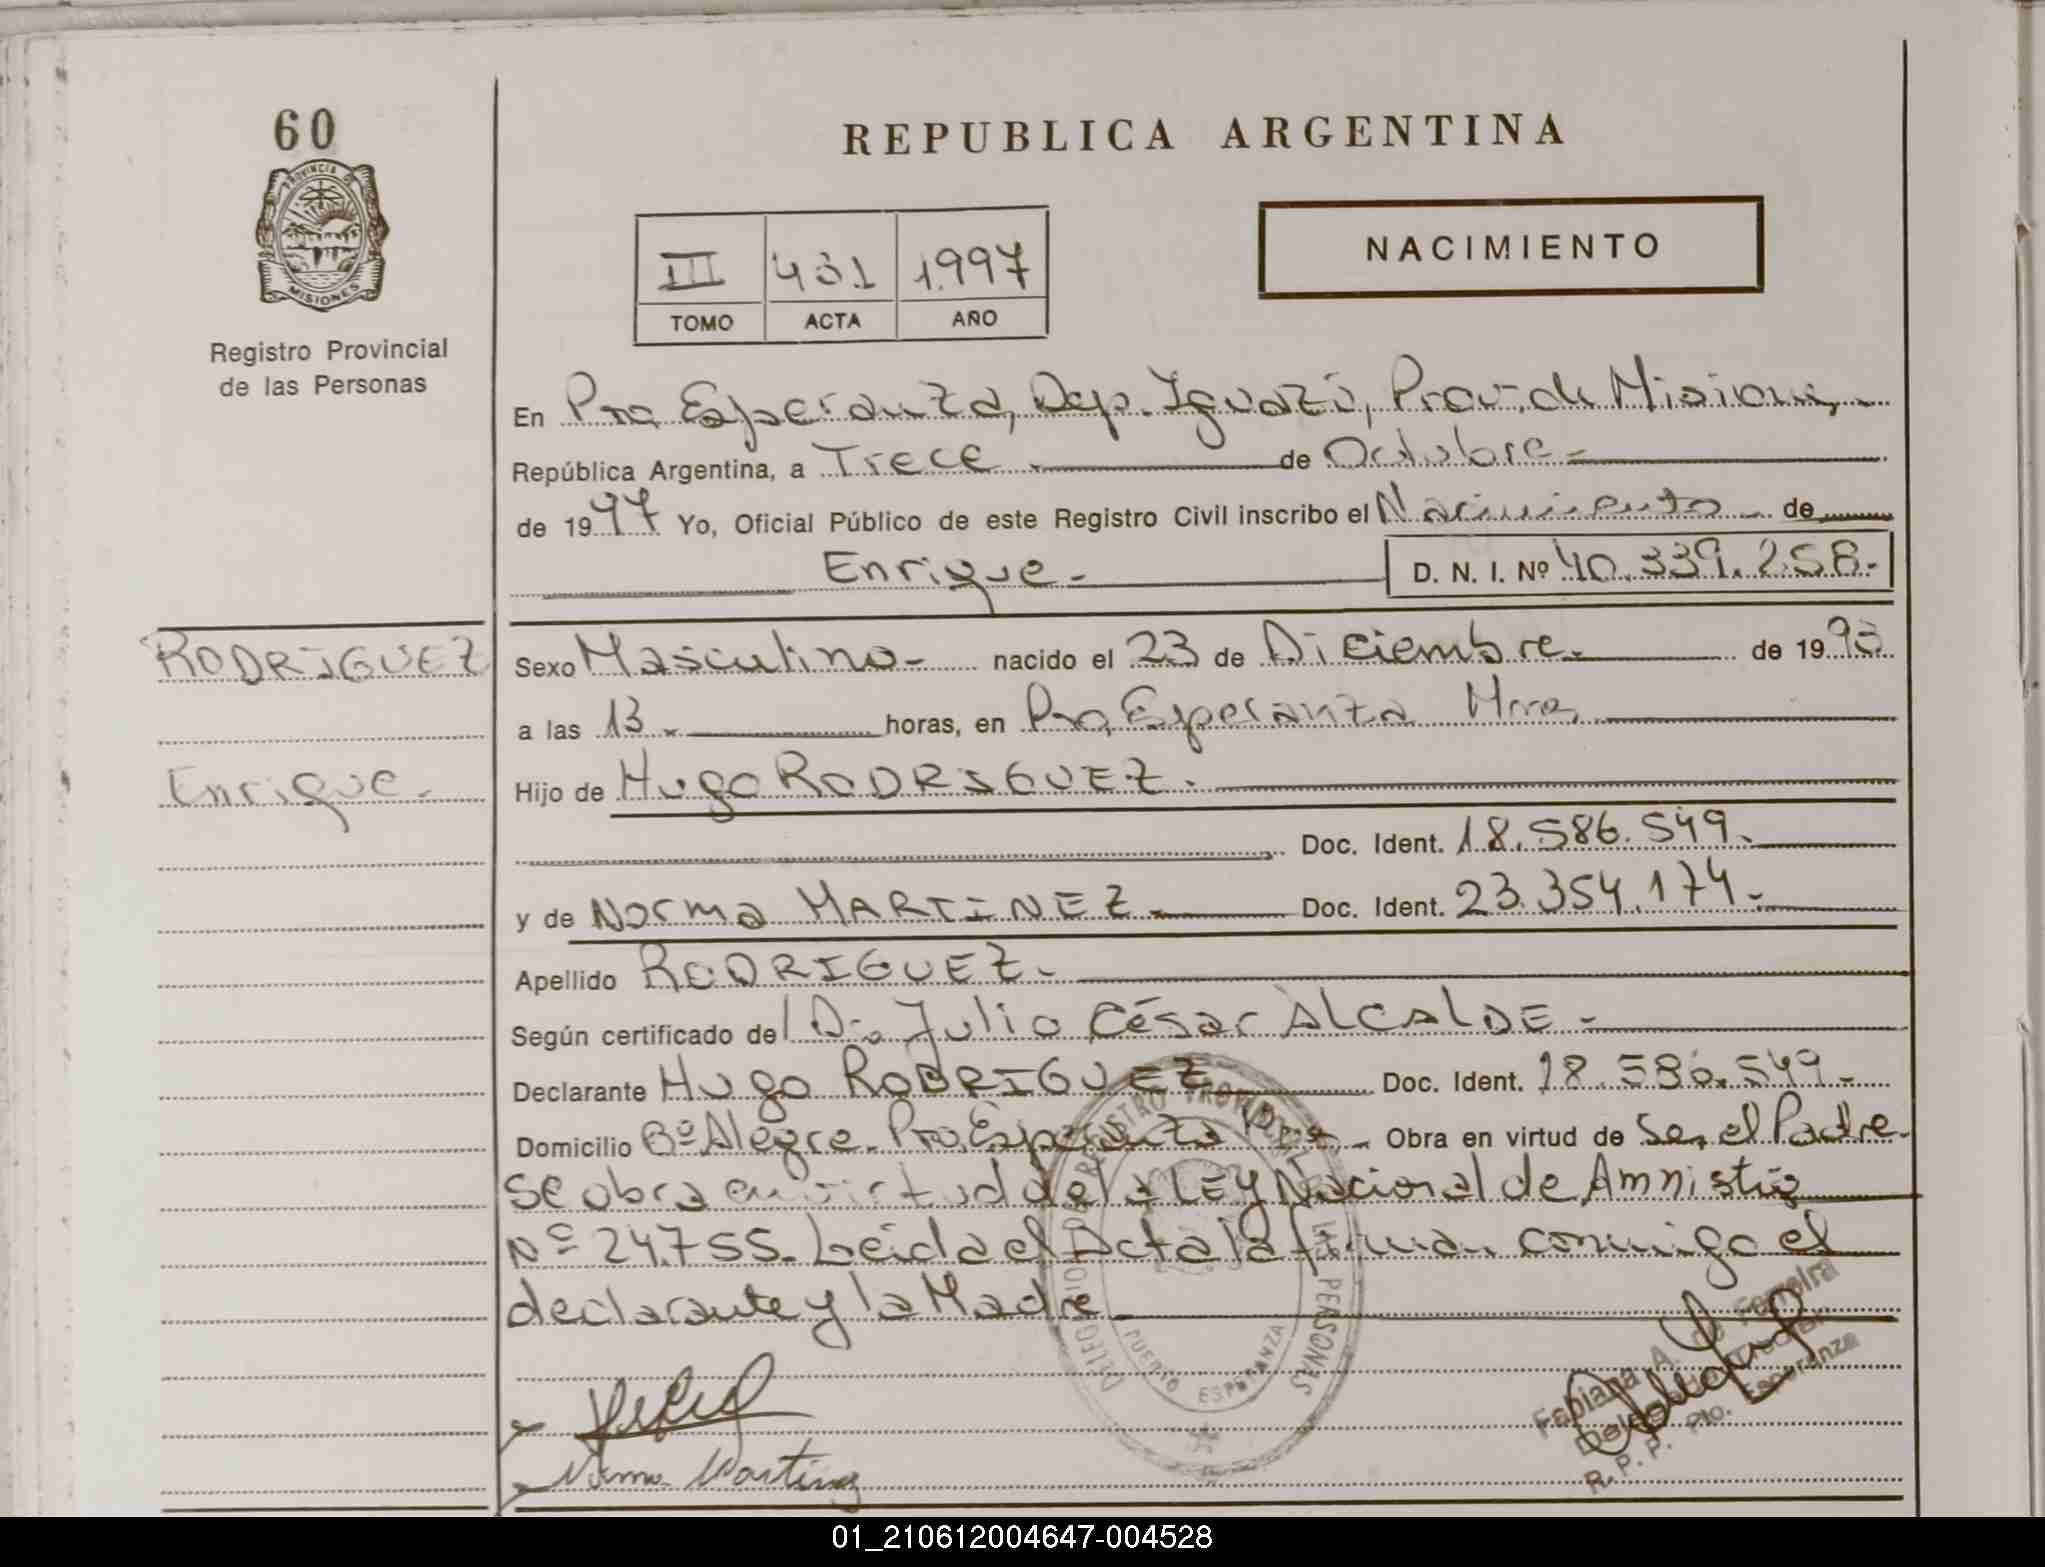 60
PROVINCIA DE
MISIONES
Registro Provincial
de las Personas
REPUBLICA ARGENTINA
III 431 1.997
TOMO ACTA AÑO
NACIMIENTO
En Pto. Esperanza, Dep. Iguazú, Prov. de Misiones,
República Argentina, a Trece de Octubre
de 1997 Yo, Oficial Público de este Registro Civil inscribo el Nacimiento de
Enrique D. N. I. Nº 40.339.258.-
RODRIGUEZ
Enrique.
Sexo Masculino nacido el 23 de Diciembre. de 19
a las 13 horas, en Pto. Esperanza Mnes.
Hijo de Hugo RODRIGUEZ.
Doc. Ident. 18.586.549.
y de Norma MARTINEZ Doc. Ident. 23.354.174.
Apellido RODRIGUEZ.
Según certificado del Dr. Julio César ALCALDE
Declarante Hugo RODRIGUEZ Doc. Ident. 18.586.549.
Domicilio Bº Alegre. Pto. Esperanza Obra en virtud de Ser el Padre
Se obra en virtud de la LEY Nacional de Amnistía
Nº 24.755. Leída el Acta la firman conmigo el
declarante y la Madre
DELEGACION REGISTRO PROVINCIAL DE LAS PERSONAS
PUERTO ESPERANZA
Norma Martinez
Fabiana A. de Ferreira
R. P. P. Pto. Esperanza
01_210612004647-004528